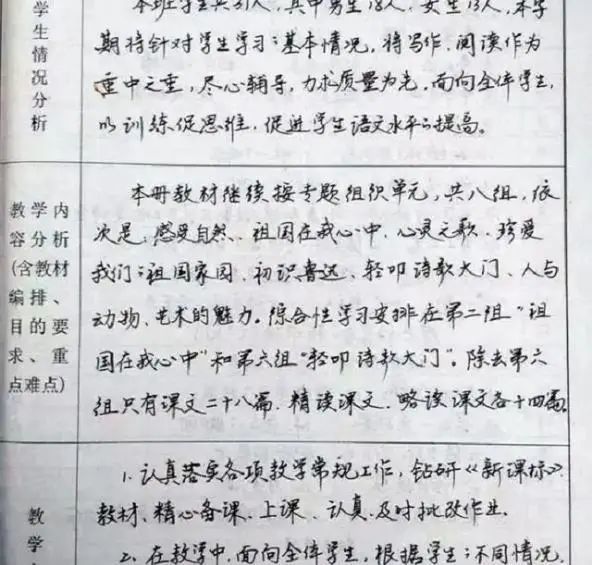 学生情况分析
本班学生共31人，其中男生18人，女生13人，本学
期将针对学生学习的基本情况，将写作、阅读作为
重中之重，尽心辅导，力求质量为先，面向全体学生，
以训练促思维，促进学生语文水平的提高。
教学内
容分析
(含教材
编排、
目的要
求、重
点难点)
本册教材继续按专题组织单元，共八组，依
次是，感受自然、祖国在我心中、心灵之歌、珍爱
我们的祖国家园、初识鲁迅、轻叩诗歌大门、人与
动物、艺术的魅力。综合性学习安排在第二组“祖
国在我心中”和第六组“轻叩诗歌大门”。除去第六
组只有课文二十八篇、精读课文、略读课文各十四篇。
教
学
1. 认真落实各项教学常规工作，钻研《新课标》
教材、精心备课、上课、认真及时批改作业。
2. 在教学中，面向全体学生，根据学生的不同情况，